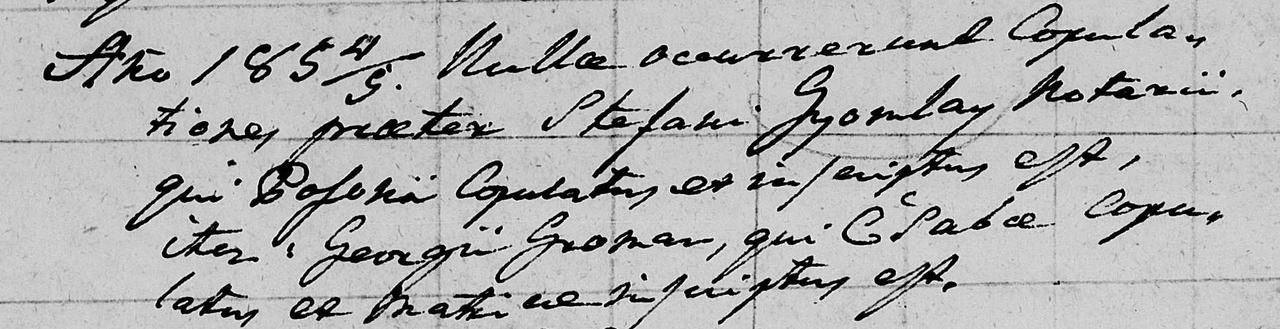 Año 185 4/5. Nullæ occurrerunt Copula„
tiones præter Stefani Gyomlay Notarii.
qui Posonii Copulatus et inscriptus est,
iter. Georgii Groman, qui Csabæ Copu„
latus et Matricæ inscriptus est.